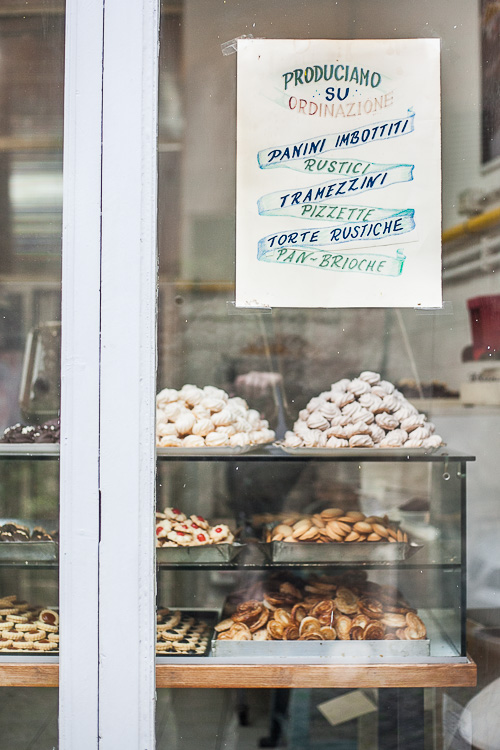 PRODUCIAMO
SU
ORDINAZIONE
PANINI IMBOTTITI
RUSTICI
TRAMEZZINI
PIZZETTE
TORTE RUSTICHE
PAN-BRIOCHE